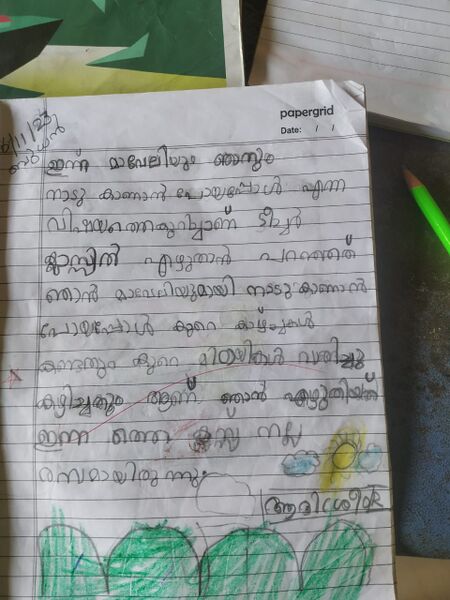 papergrid
Date: / /
6/11/23
ബുധൻ
ഇന്ന് മാവേലിയും ഞാനും
നാടു കാണാൻ പോയപ്പോൾ എന്ന
വിഷയത്തെകുറിച്ചാണ് ടീച്ചർ
ക്ലാസ്സിൽ എഴുതാൻ പറഞ്ഞത്
ഞാൻ മാവേലിയുമായി നാടുകാണാൻ
പോയപ്പോൾ കുറെ കാഴ്ച്ചകൾ
കണ്ടന്നും കുറെ മിഠായികൾ വാങിച്ചു
കഴിച്ചതും ആണ്. ഞാൻ എഴുതിയത്
ഇന്ന ത്തെ ക്ലസ്സ് നല്ല
രസ്സമായിരു ന്നു.